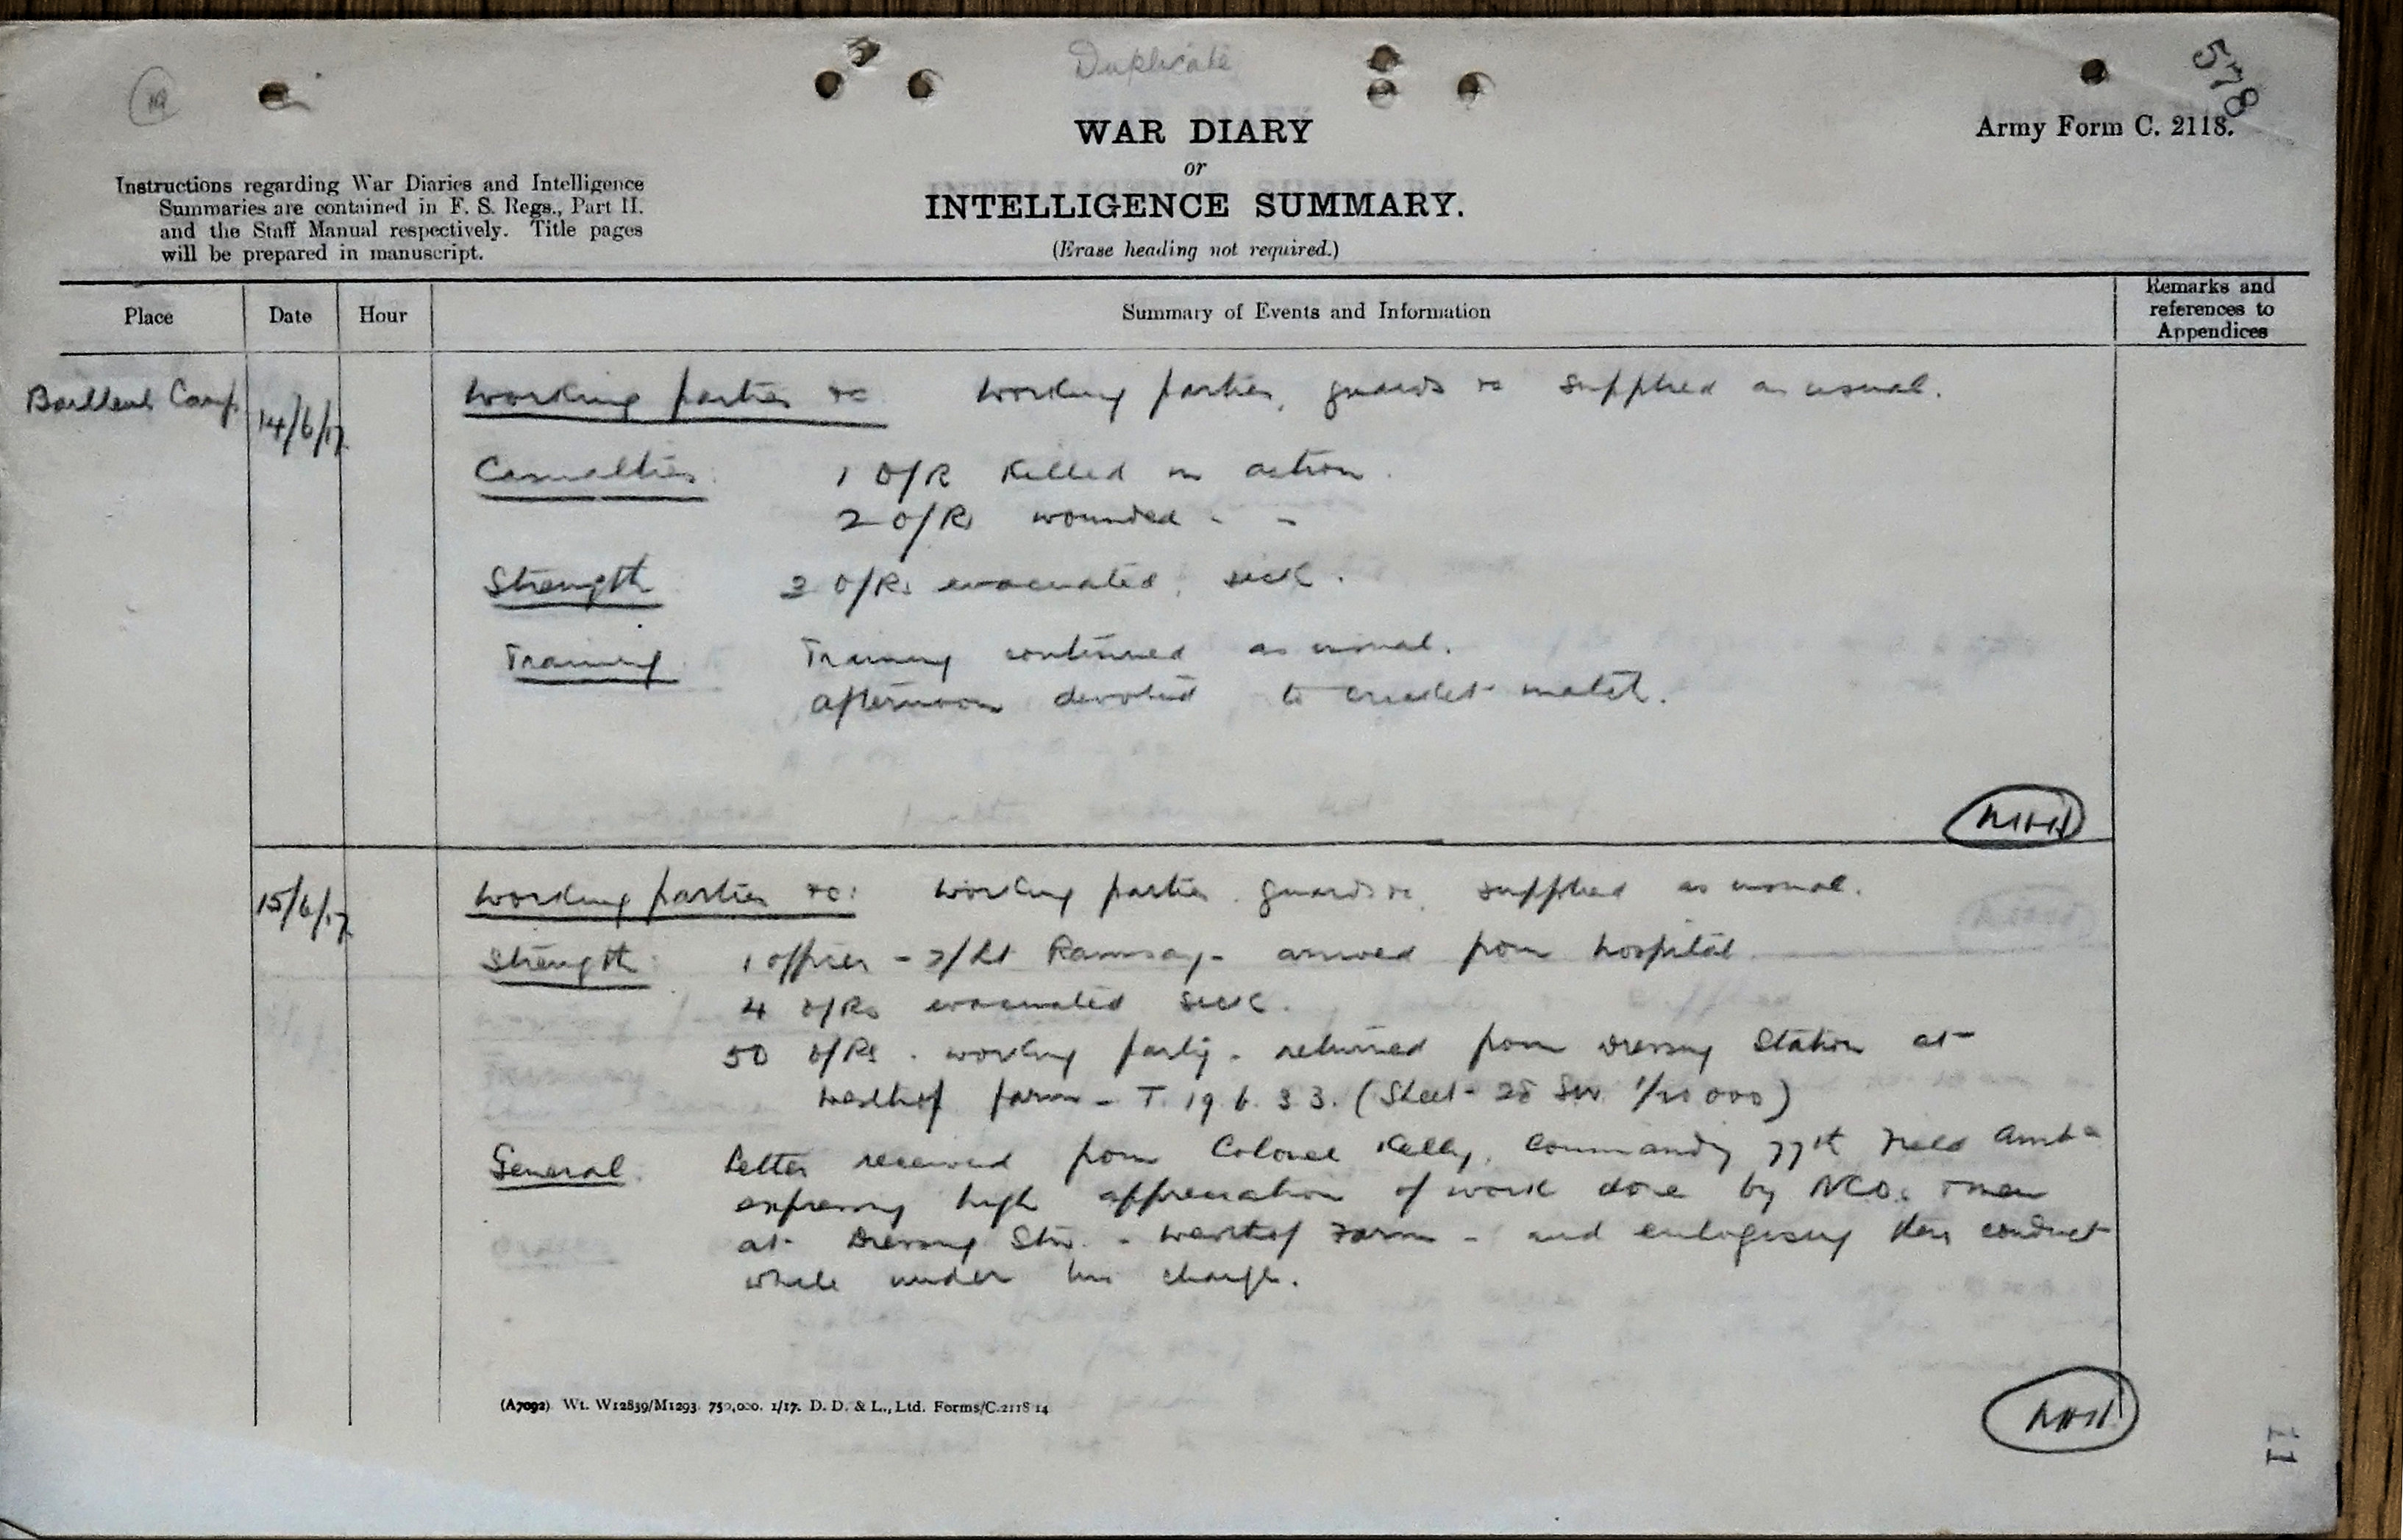 Duplicate
578
WAR DIARY
or
INTELLIGENCE SUMMARY.
(Erase heading not required.)
Army Form C. 2118.
Instructions regarding War Diaries and Intelligence
Summaries are contained in F. S. Regs., Part II.
and the Staff Manual respectively. Title pages
will be prepared in manuscript.
Place Date Hour Summary of Events and Information Remarks and
references to
Appendices
Bailleul Camp 14/6/17 Working parties &c Working parties, guards &c supplied as usual.
Casualties. 1 O/R Killed in action.
2 O/Rs wounded " "
Strength O/Rs evacuated, sick.
Training Training continued as usual.
afternoon devoted to cricket match.
15/6/17 Working parties &c: Working parties guards &c. supplied as usual.
Strength: 1 officer - 2/Lt Ramsay - arrived from hospital
4 O/Rs evacuated sick.
50 O/Rs. working party - returned from Dressing Station at
Westhof farm - T. 19. b. 3 3. (Sheet 28 SW. 1/20000)
General. Letter received from Colonel Kelly, Commandg 77th Field Ambce
expressing high appreciation of work done by NCOs & men
at Dressing Stn. - Westhof Farm - and eulogising their conduct
while under his charge.
(A7092) Wt. W12839/M1293. 750,000. 1/17. D. D. & L., Ltd. Forms/C.2118 14
11